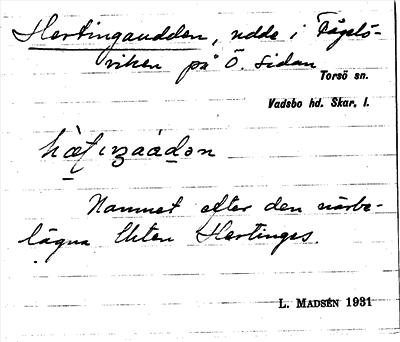 Hertingaudden, udde i Fågelö-
viken på Ö. sidan
Torsö sn.
Vadsbo hd. Skar. l.
Namnet efter den närbe-
lägna Hertinges.
L. MADSÉN 1931